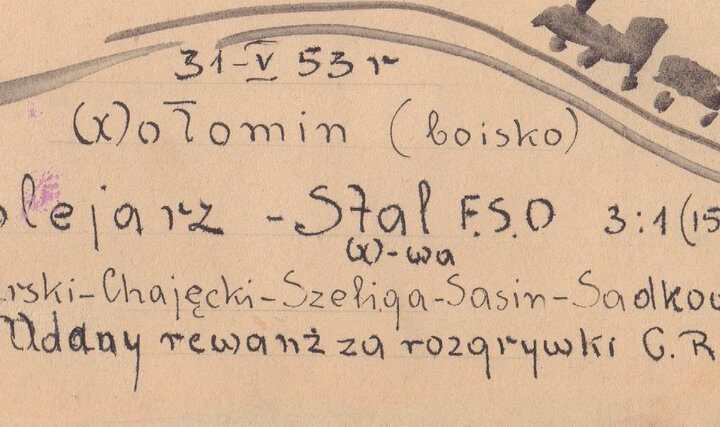 31-V 53 r
Wołomin (boisko)
olejarz - Stal F.S.O 3:1 (15
W-wa
rski-Chajęcki-Szeliga-Sasin-Sadkow
Udany rewanż za rozgrywki C.R